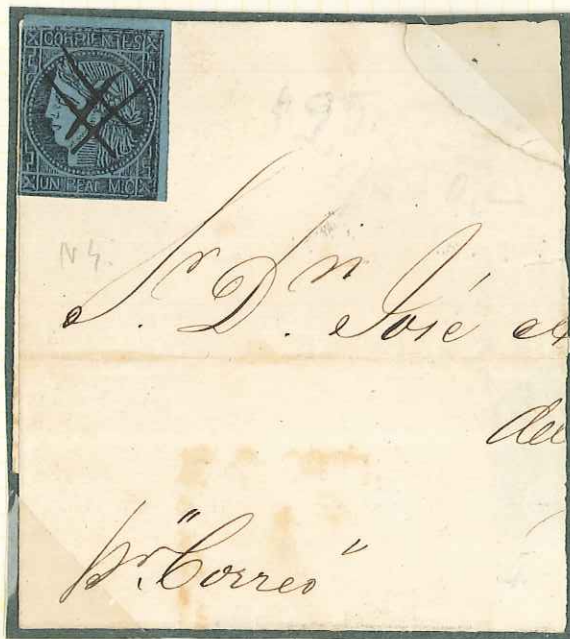 CORRIENTES
UN REAL M.C.
N 4.
Sr. Dn. José
de
pr. "Correo"